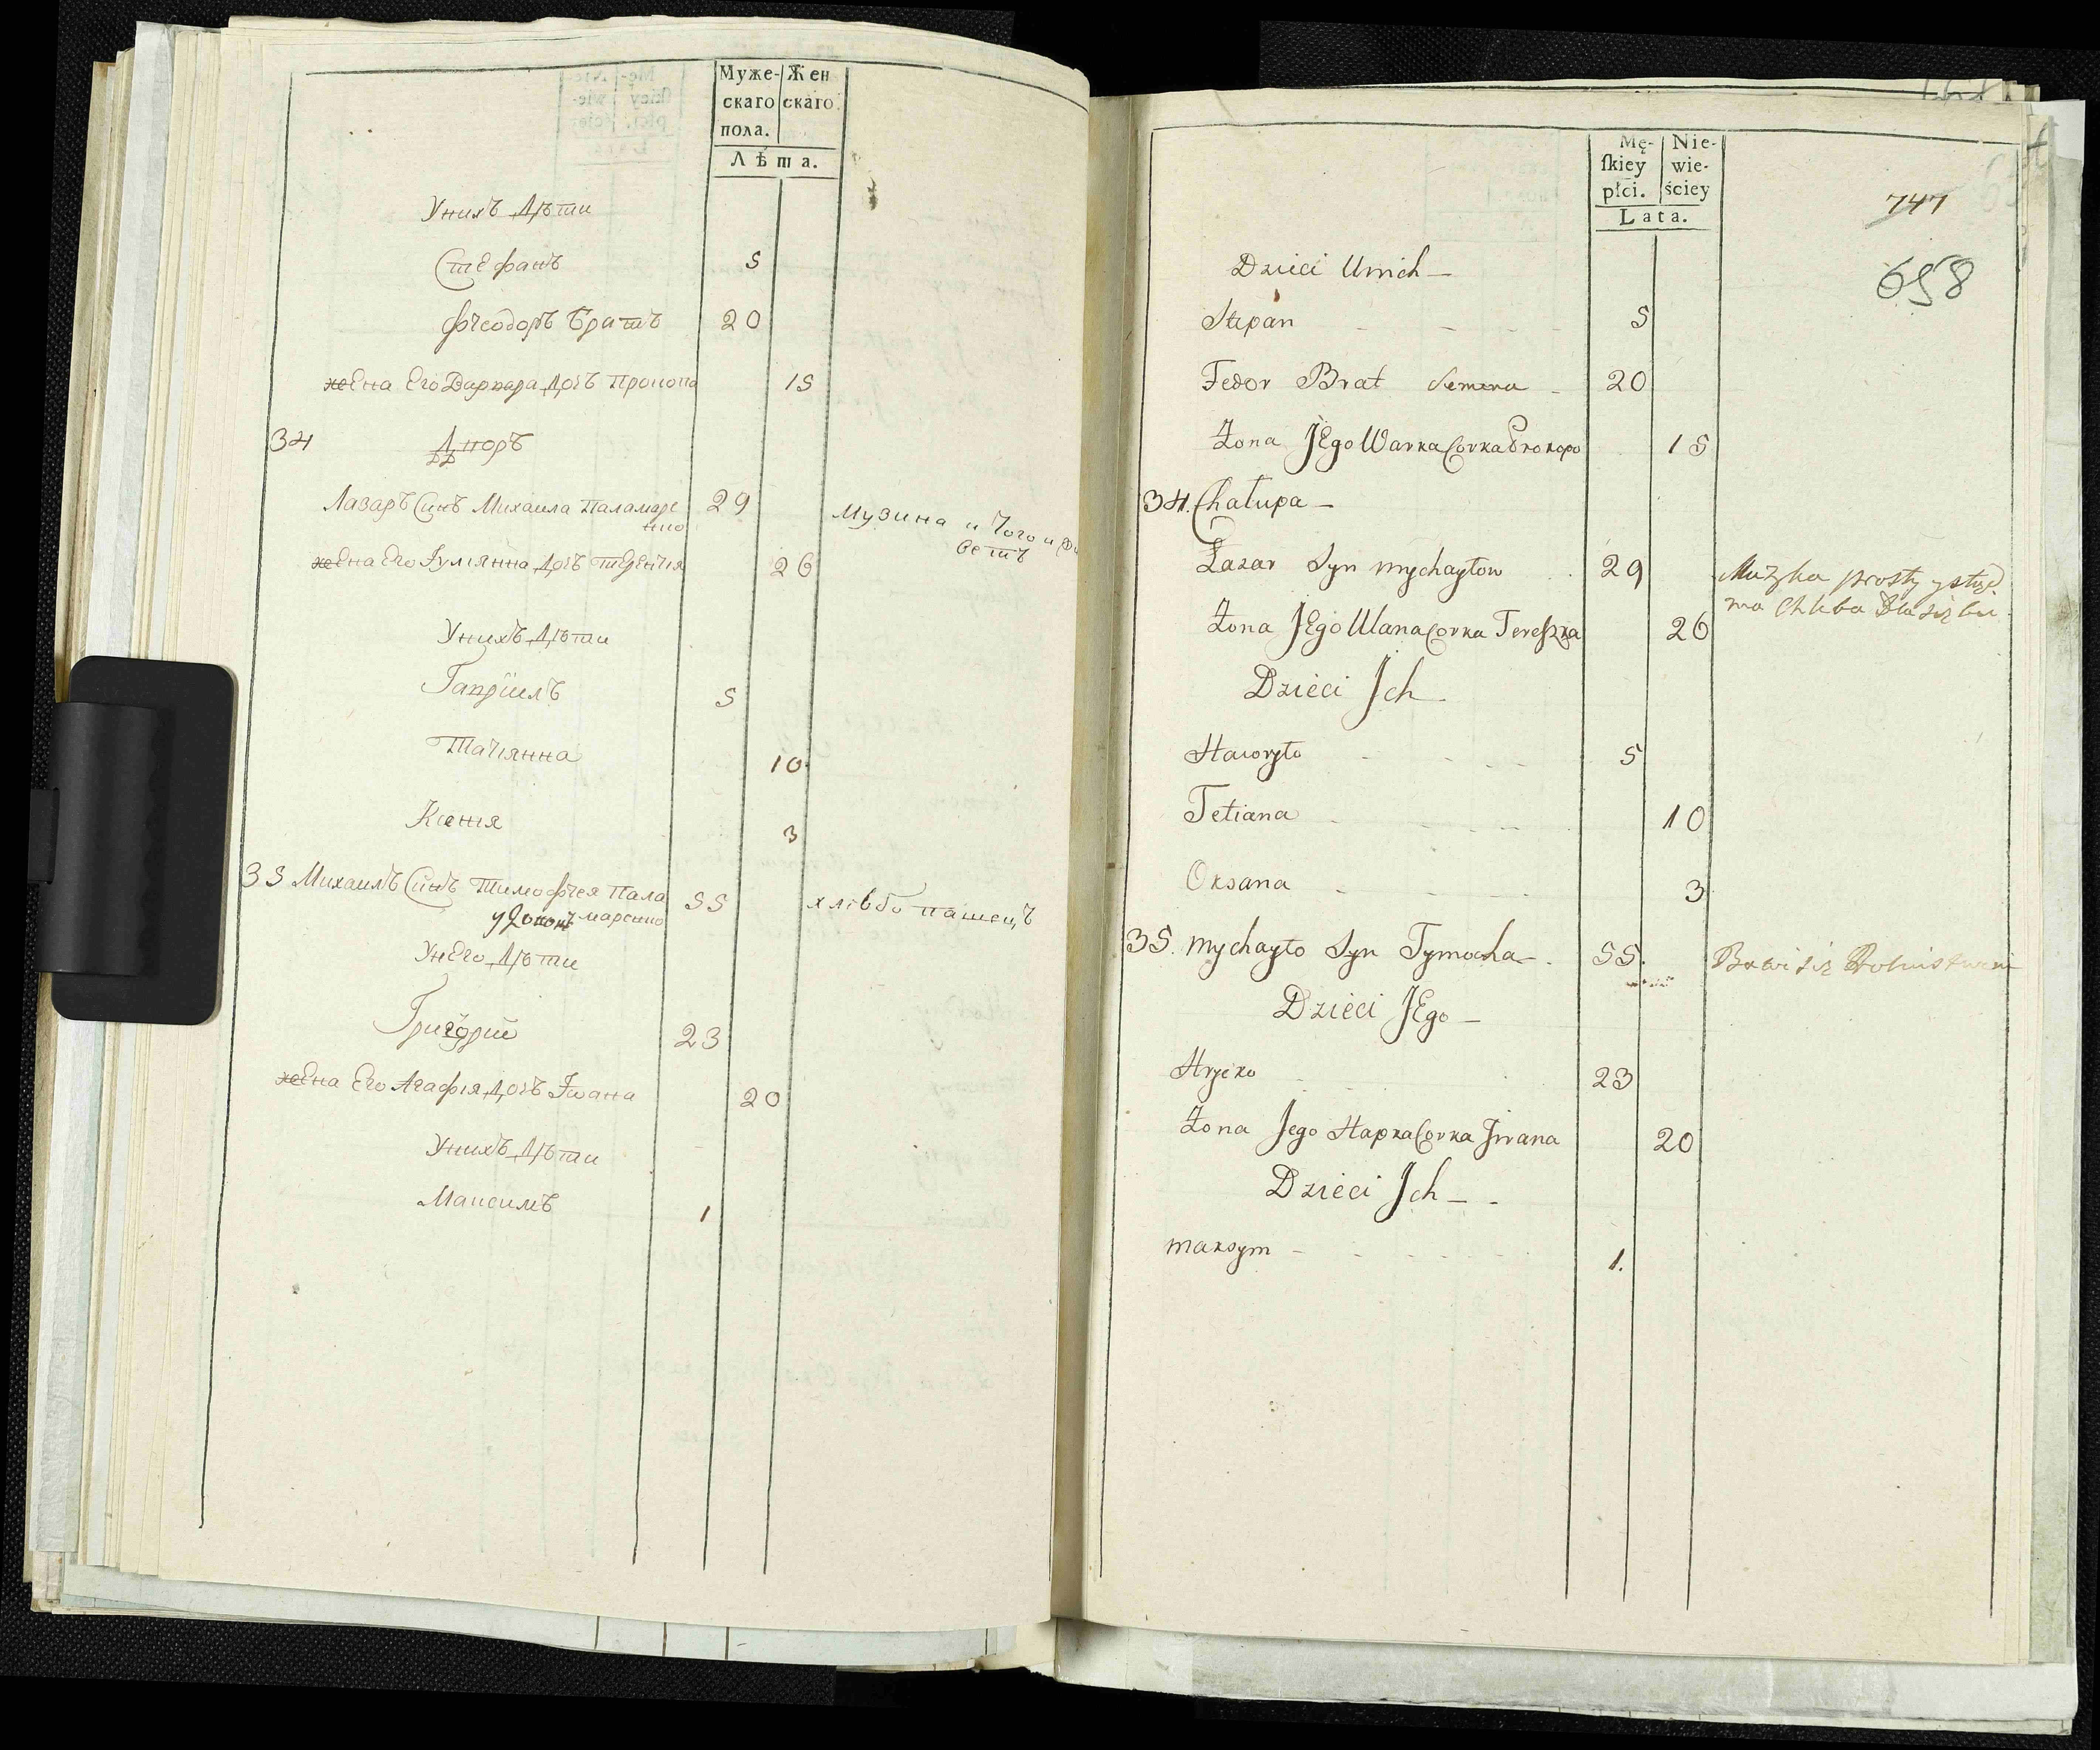 Муже- Жен
скаго скаго
пола.
Лѣта.
Унихъ Дѣти
Стефанъ 5
Фѣеодоръ Братъ 20
жена Его Варвара Дочъ Прокопа 15
34 Дворъ
Лазарь Синъ Михаила Паламаре 29 Музина и того и
нко
жена Его Іулиянна Дочъ Терентія 26
Унихъ Дѣти
Гавріилъ 5
Татіянна 10
Ксенія 3
35 Михаилъ Синъ Тимофѣея Пала 55 хлѣбопашецъ
марснко
Унего Дѣти
Григорій 23
жена Его Агафія Дочъ Іоана 20
Унихъ Дѣти
Максимъ 1
Mę- Nie-
ſkiey wie-
płci. ściey
Lata.
747
658
Dzieci Unich –
Stepan 5
Fedor Brat Semena 20
Żona JEgo Warka Corka Prokopo 15
34. Chałupa –
Łazar Syn Mychayłow 29 Muzyka prosty y stąd
ma Chleba Dla siebie
Żona JEgo Ulana Corka Tereszka 26
Dzieci Jch
Hawryło 5
Tetiana 10
Oksana 3
35. Mychayło Syn Tymocha 55. Bawi się Rolnistwem
Dzieci JEgo –
Hrycko 23
Żona Jego Hapka Corka Jwana 20
Dzieci Jch –
Maksym 1.